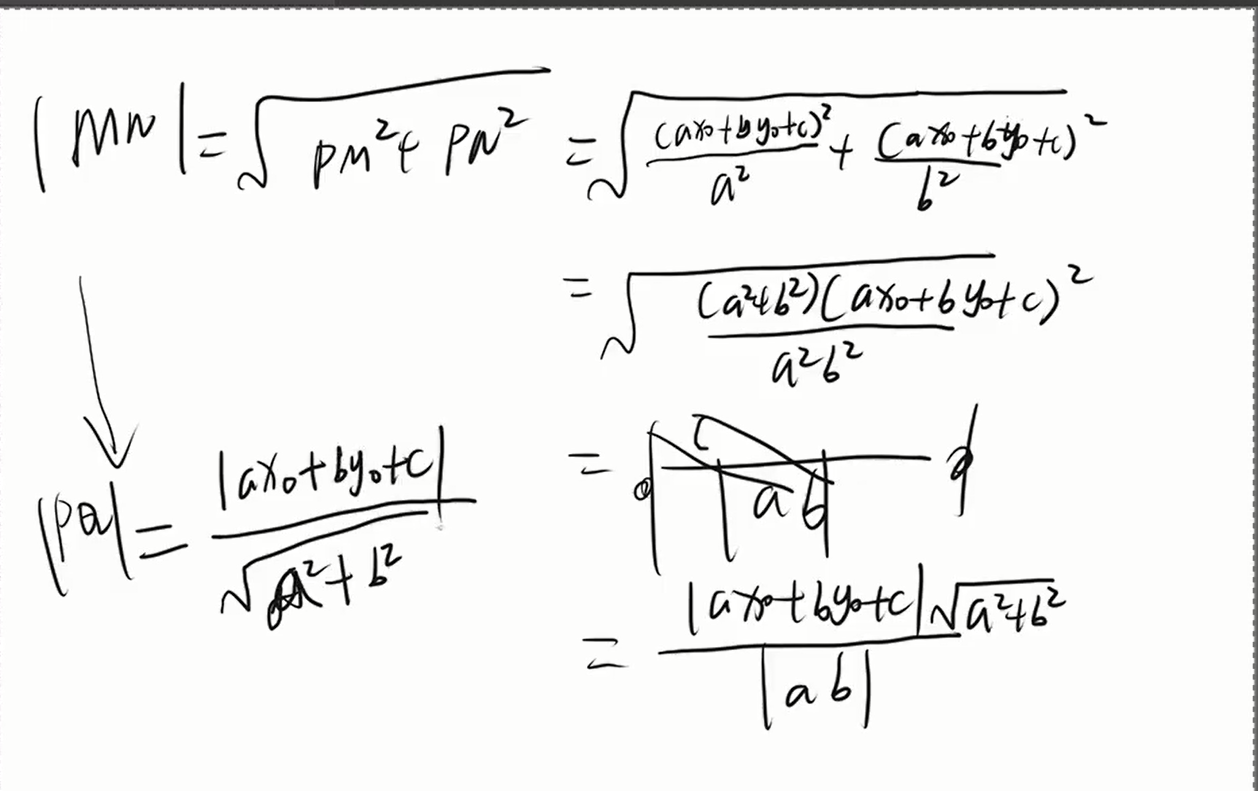 |MN| = √(PM² + PN²) = √((ax₀+by₀+c)²/a² + (ax₀+by₀+c)²/b²)
= √((a²+b²)(ax₀+by₀+c)²/a²b²)
|PQ| = |ax₀+by₀+c|/√(a²+b²)
= |ax₀+by₀+c|√(a²+b²)/|ab|